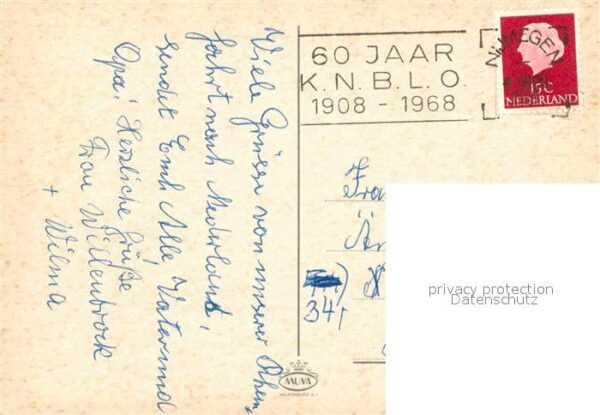 Viele Grüsse von unserer Rhein-
fahrt nach Nederland,
sendet Euch Alle Vater und
Opa! Herzliche Grüße
Frau Willenbrock
+ Wilma
60 JAAR
K.N.B.L.O.
1908 - 1968
NIJMEGEN
15C
NEDERLAND
34,
MUVA
VALKENBURG
privacy protection
Datenschutz